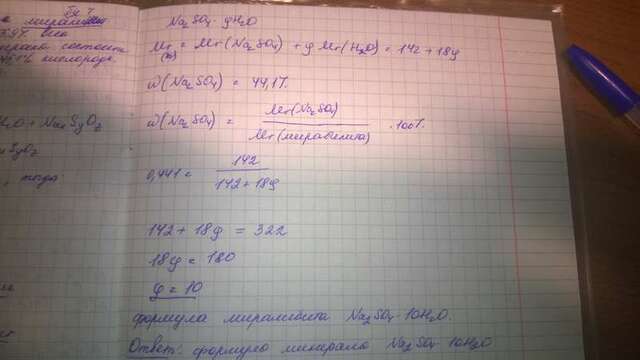 Na₂SO₄ · yH₂O
Mr = Mr(Na₂SO₄) + y Mr(H₂O) = 142 + 18y
ω(Na₂SO₄) = 44,1%
ω(Na₂SO₄) = Mr(Na₂SO₄) / Mr(мирабилита) · 100%
0,441 = 142 / 142 + 18y
142 + 18y = 322
18y = 180
y = 10
формула мирабилита Na₂SO₄ · 10H₂O.
Ответ: формула минерала Na₂SO₄ · 10H₂O
всего
состоит
кислорода
тогда